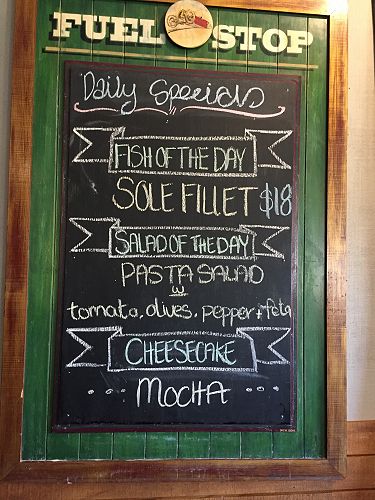 FUEL STOP
Daily Specials
FISH OF THE DAY
SOLE FILLET $18
SALAD OF THE DAY
PASTA SALAD
w
tomato, olives, pepper + feta
CHEESECAKE
MOCHA